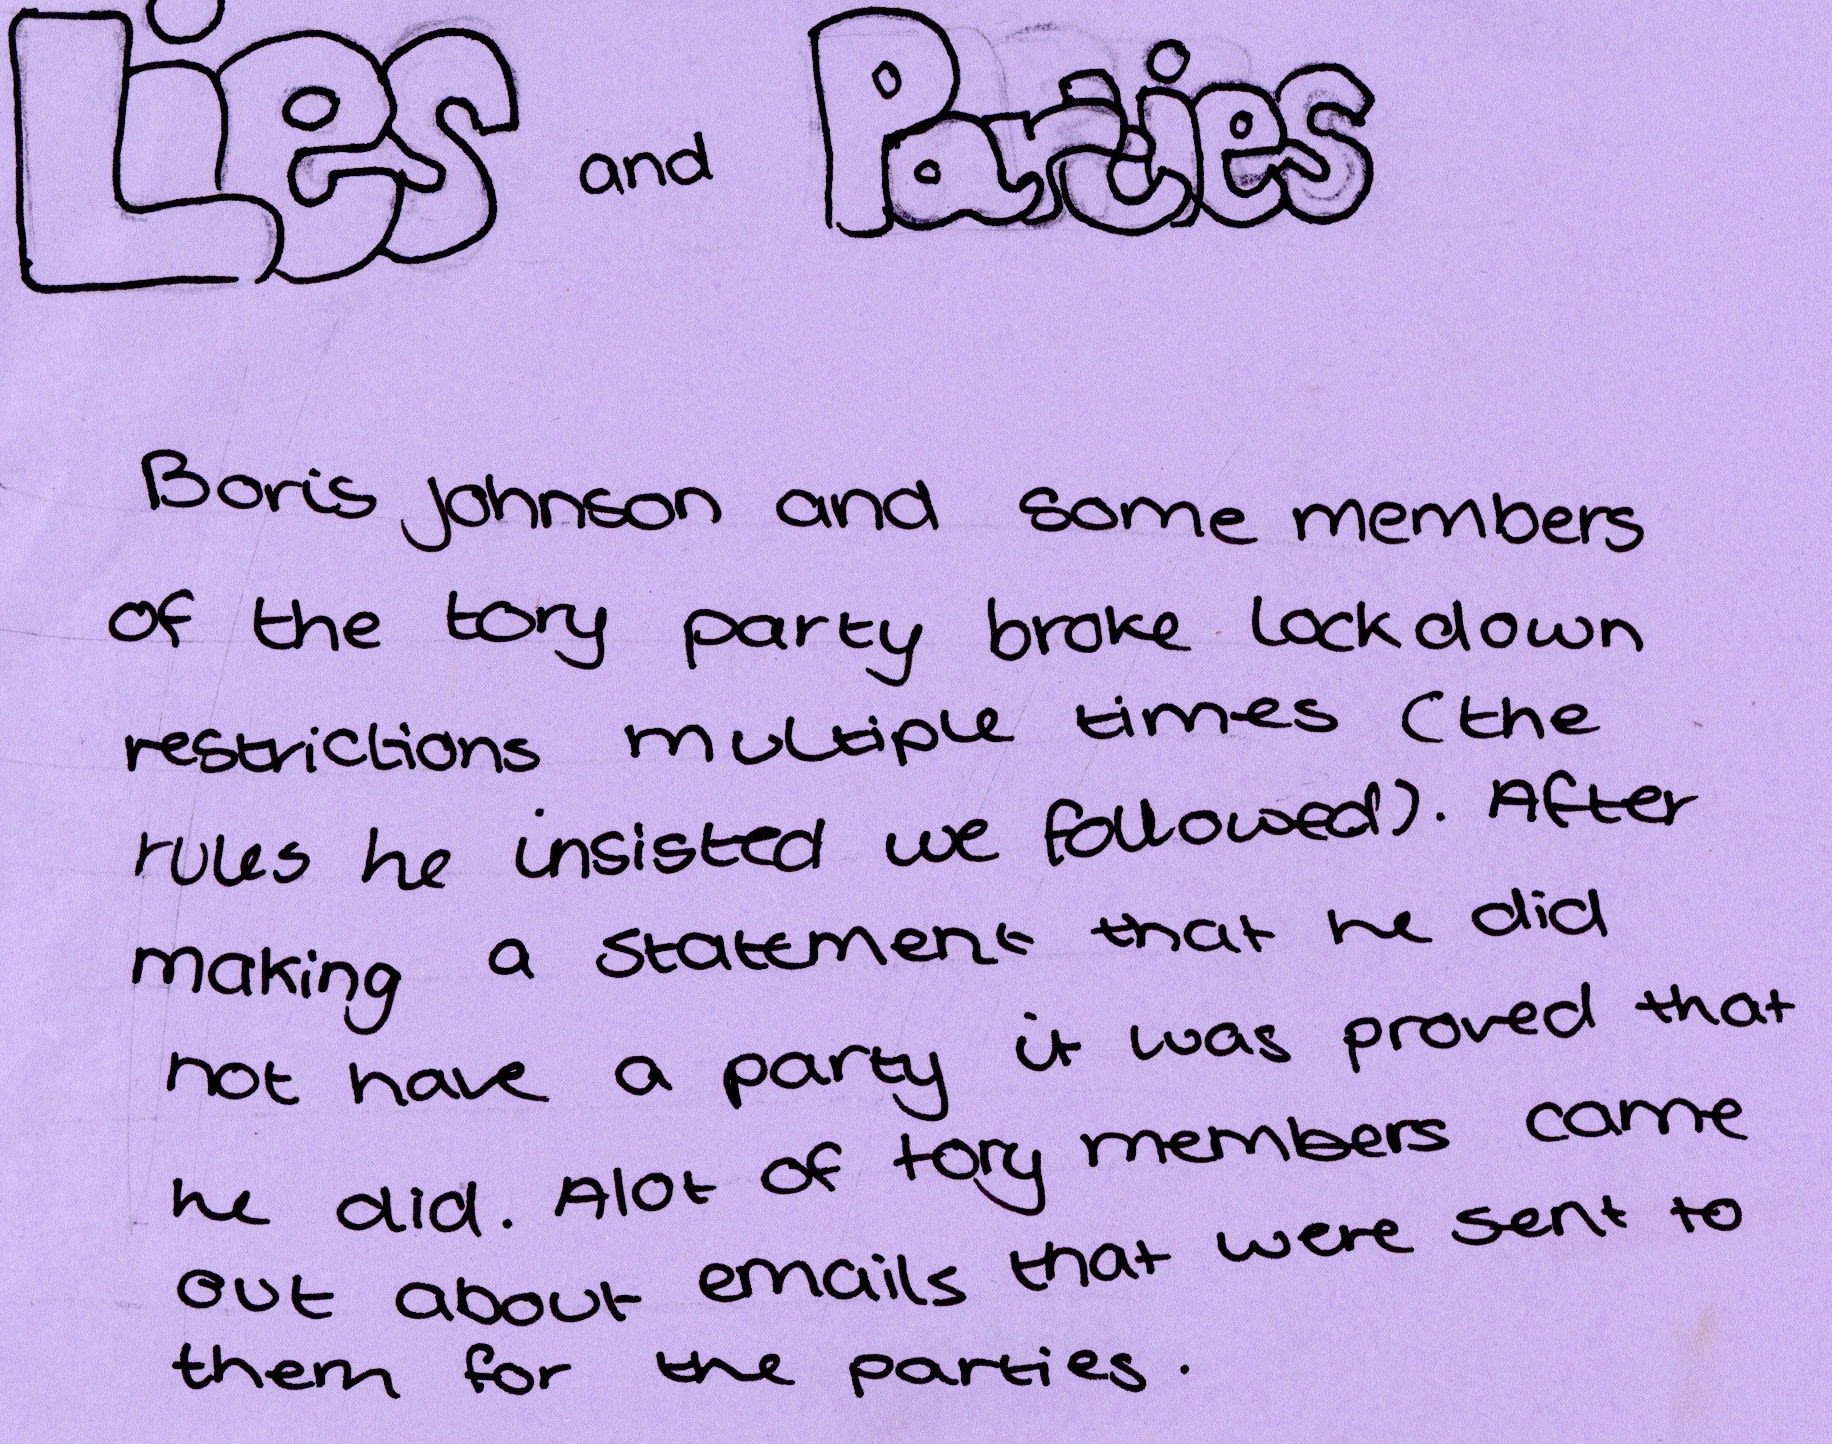 Lies and Parties
Boris Johnson and some members
of the tory party broke lockdown
restrictions multiple times (the
rules he insisted we followed). After
making a statement that he did
not have a party it was proved that
he did. Alot of tory members came
out about emails that were sent to
them for the parties.